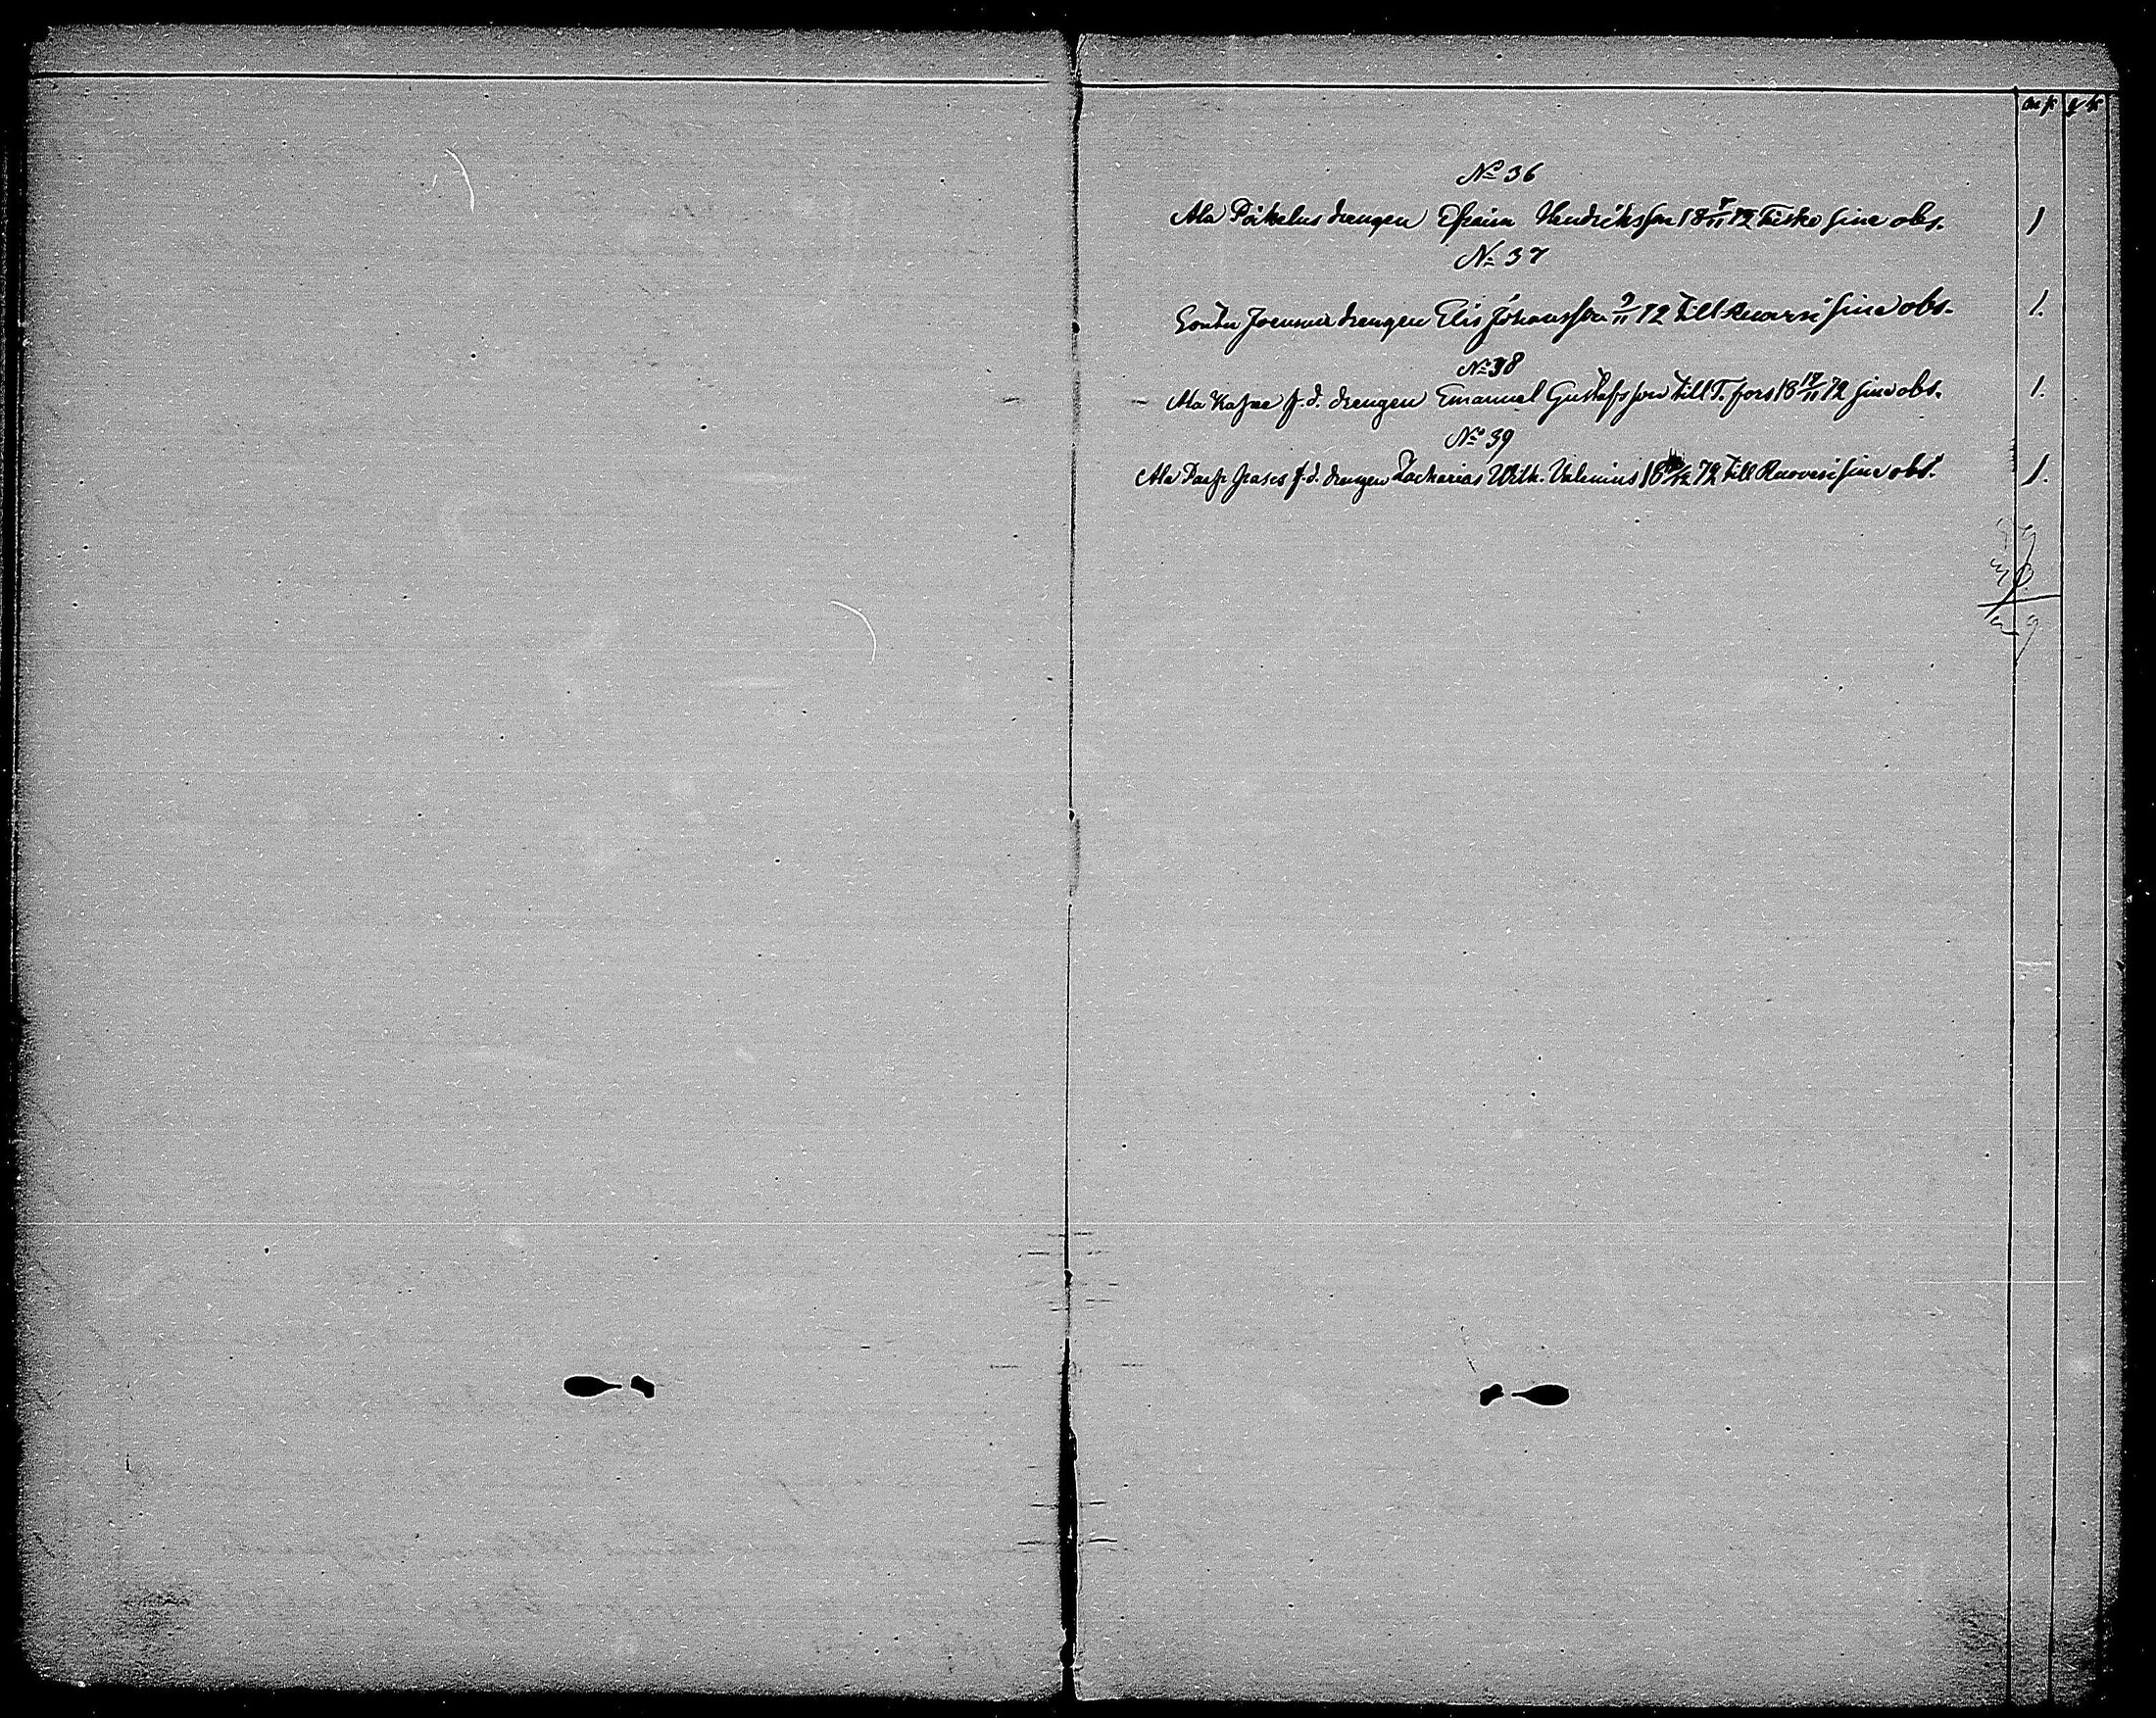 mk qk
No 36
Ala Poikelus drengen Efraim Hendriksson 18 7/11 72 Kisko sine obs. 1
No 37
drengen Elis Johansson 9/11 72 till Ruovesi sine obs. 1.
No 38
Ala f.d. drengen Emanuel Gustafsson till T.fors 18 17/11 72 sine obs. 1.
No 39
Ala f.d. drengen Zacharias Wilh. Valenius 18 /12 72 till Ruovesi sine obs. 1.